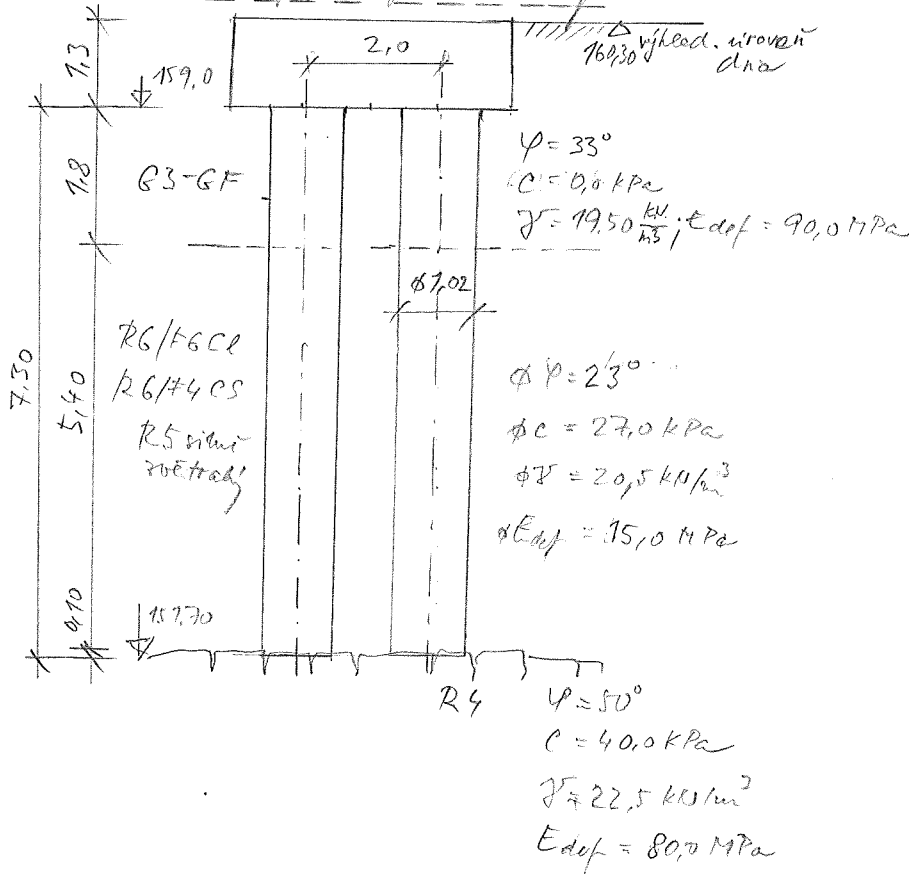 160,30 výhled. úroveň
dna
1,3
2,0
159,0
1,8
G3-GF
φ = 33°
C = 0,0 kPa
γ = 19,50 kN/m3; Edef = 90,0 MPa
ϕ1,02
7,30
5,40
R6/F6CL
R6/F4 CS
R5 silně
zvětralý
ϕ φ = 23°
ϕ c = 27,0 kPa
ϕ γ = 20,5 kN/m3
ϕ Edef = 15,0 MPa
0,10
151,70
R4
φ = 50°
C = 40,0 kPa
γ = 22,5 kN/m3
Edef = 80,0 MPa